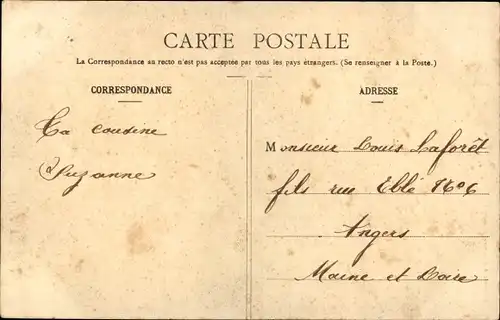 CARTE POSTALE
La Correspondance au recto n'est pas acceptée par tous les pays étrangers. (Se renseigner à la Poste.)
CORRESPONDANCE
Ta cousine
Suzanne
ADRESSE
Monsieur Louis Laforêt
fils rue Eblé N° 6
Angers
Maine et Loire